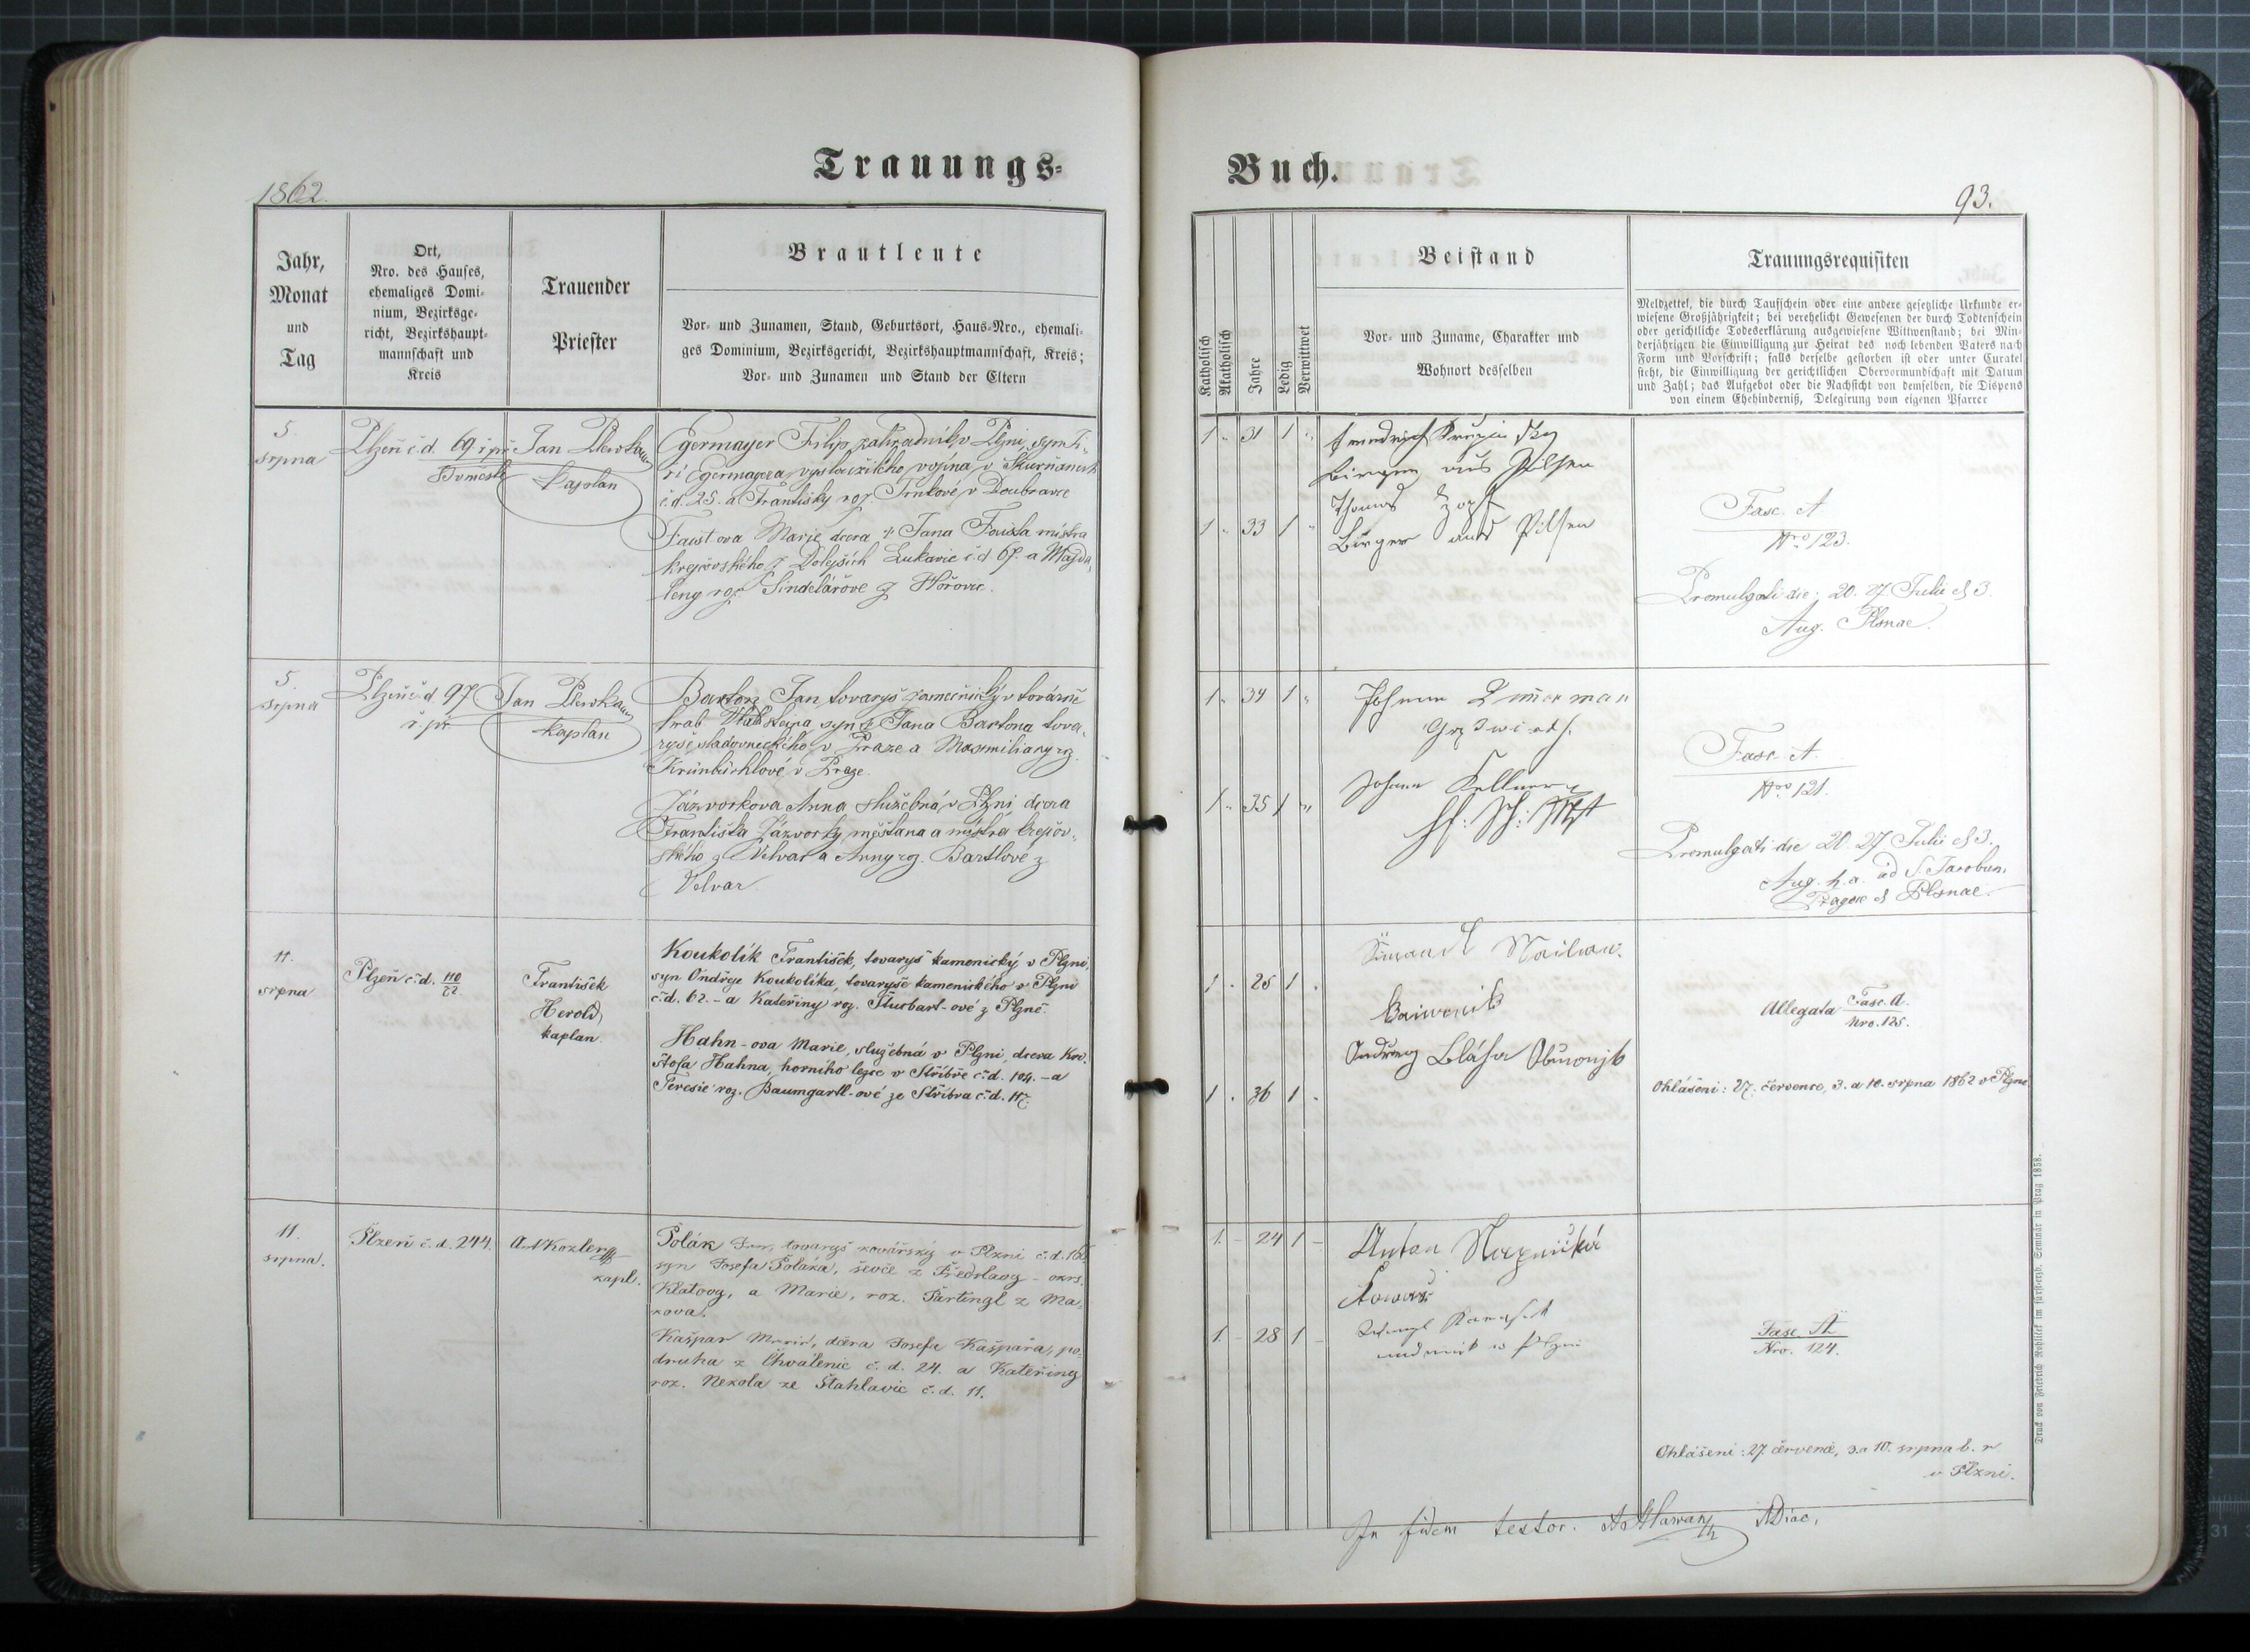 Trauungs-
1862.
Jahr,
Monat
und
Tag
Ort,
Nro. des Hauses,
ehemaliges Domi-
nium, Bezirksge-
richt, Bezirkshaupt-
mannschaft und
Kreis
Trauender
Priester
Brautleute
Vor- und Zunamen, Stand, Geburtsort, Haus-Nro., ehemali-
ges Dominium, Bezirksgericht, Bezirkshauptmannschaft, Kreis;
Vor- und Zunamen und Stand der Eltern
5.
srpna
Plzeň č.d. 69
Jan
kaplan
Egermayer Filip zahradník v Plzni, syn
Egermayera vysloužilého vojína v Skurňanech
č.d. 25. a Františky roz. Trnkové v Doubravce
Faustova Marie dcera Jana Fausta mistra
krejčovského z Dolejších Lukavic č.d. 67. a Magda-
leny roz. Sindelářové z Hořovic.
5.
srpna
Plzeň č.d. 97
Jan
kaplan
Barton Jan tovaryš zámečnický v továrně
hrab. syn Jana Bartona tova-
ryše sladovnického v Praze a Maximiliany rz.
v Praze.
Zázvorkova Anna služebná v Plzni dcera
Františka Zázvorky měšťana a mistra krejčov-
ského z Velvar a Anny rz. Bartlové z
Velvar
11.
srpna
Plzeň č.d. 110
František
Herold,
kaplan.
Koukolík František, tovaryš kamenický v Plzni,
syn Ondřeje Koukolíka, tovaryše kamenického v Plzni
č.d. 62. - a Kateřiny roz. z Plzně.
Hahn-ova Marie, služebná v Plzni, dcera Kri-
štofa Hahna, horního lezce v Stříbře č.d. 104. - a
Teresie roz. Baumgartl-ové ze Stříbra č.d. 117.
11.
srpna.
Plzeň č.d. 244.
Ant Kozler
kapl.
Polák Jan, tovaryš kovářský v Plzni č.d. 166
syn Josefa Poláka, ševce z Předslavy - okrs.
Klatovy, a Marie, roz. Partingl z Ma-
kova.
Kašpar Marie, dcera Josefa Kašpara, po-
druha z Chválenic č.d. 24. a Kateřiny
roz. Nekola ze Štahlavic č.d. 11.
Buch.
93.
Katholisch
Akatholisch
Jahre
Ledig
Verwittwet
Beistand
Vor- und Zuname, Charakter und
Wohnort desselben
Trauungsrequisiten
Meldzettel, die durch Taufschein oder eine andere gesetzliche Urkunde er-
wiesene Großjährigkeit; bei verehelicht Gewesenen der durch Todtenschein
oder gerichtliche Todeserklärung ausgewiesene Wittwenstand; bei Min-
derjährigen die Einwilligung zur Heirat des noch lebenden Vaters nach
Form und Vorschrift; falls derselbe gestorben ist oder unter Curatel
steht, die Einwilligung der gerichtlichen Obervormundschaft mit Datum
und Zahl; das Aufgebot oder die Nachsicht von demselben, die Dispens
von einem Ehehinderniß, Delegirung vom eigenen Pfarrer
1 31 1
Friedrich
Bürger aus Pilsen
Thomas Zopf
1 33 1
Bürger aus Pilsen
Fasc. A
Nro 123.
Promulgati die: 20. 27 Julii et 3.
Aug. Plsnae.
1 34 1
Johann Zimmerman
1 35 1
Johann Kellner
Fasc. A.
Nro 121.
Promulgati die 20. 27 Julii et 3.
Aug. h.a. ad S. Jacobum
Pragae et Plsnae.
1 25 1
1 36 1
Ondřej Bláha
Allegata Fasc. A.
Nro. 125.
Ohlášeni: 27. července, 3. a 10. srpna 1862 v Plzni
1. 24 1
Anton
1. 28 1
Fasc. A
Nro. 124.
Ohlášeni: 27. července, 3. a 10. srpna b. r
v Plzni.
In fidem testor.
Druck von Friedrich Rohliček im fürsterzb. Seminär in Prag 1858.